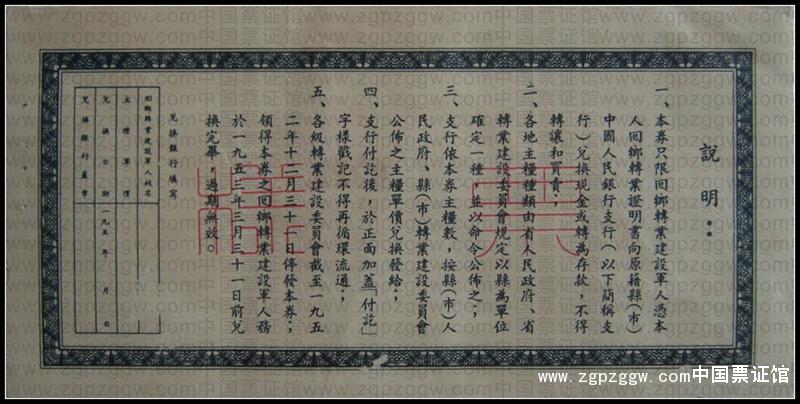 說明：
一、本券只限回鄉轉業建設軍人憑本
人回鄉轉業證明書向原籍縣(市)
中國人民銀行支行(以下簡稱支
行)兌換現金或轉為存款，不得
轉讓和買賣；
二、各地主糧種類由省人民政府、省
轉業建設委員會規定以縣為單位
確定一種，並以命令公佈之；
三、支行依本券主糧數，按縣(市)人
民政府、縣(市)轉業建設委員會
公佈之主糧單價兌換發給；
四、支行付訖後，於正面加蓋「付訖」
字樣戳記不得再循環流通；
五、各級轉業建設委員會截至一九五
二年十二月三十一日停發本券；
領得本券之回鄉轉業建設軍人務
於一九五三年三月三十一日前兌
換完畢，過期無效。
兌換銀行填寫
回鄉轉業建設軍人姓名
主糧單價
兌換日期 一九五 年 月 日
兌換銀行蓋章
www.zgpzggw.com中国票证馆